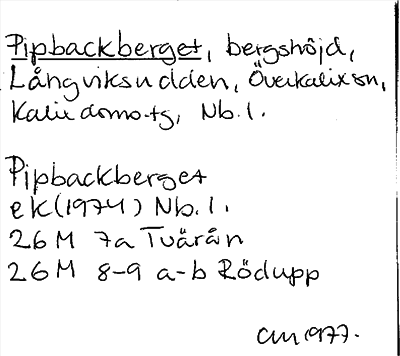 Pipbackberget, bergshöjd,
Långviksudden, Överkalix sn,
Kalix doms-tg, Nb. l.
Pipbackberget
ek (1974) Nb. l.
26 M 7a Tvärån
26 M 8-9 a-b Rödupp
CM 1977.